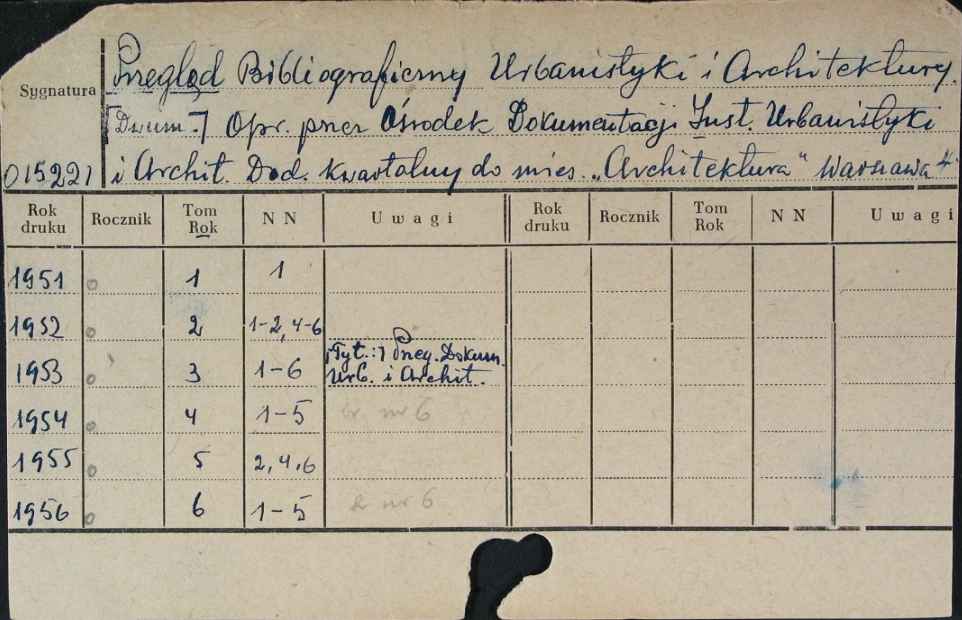 Przegląd Bibliograficzny Urbanistyki i Architektury.
Sygnatura
[Dwum.] Opr. przez Ośrodek Dokumentacji Inst. Urbanistyki
015221 i Archit. Dod. kwartalny do mies. „Architektura" Warszawa 4°
Rok druku Rocznik Tom Rok N N Uwagi Rok druku Rocznik Tom Rok N N Uwagi
1951 o 1 1
1952 o 2 1-2, 4-6
[Tyt.:] Przeg. Dokum.
1953 o 3 1-6 Urb. i Archit.
1954 o 4 1-5 nr 6
1955 o 5 2,4,6
1956 o 6 1-5 nr 6